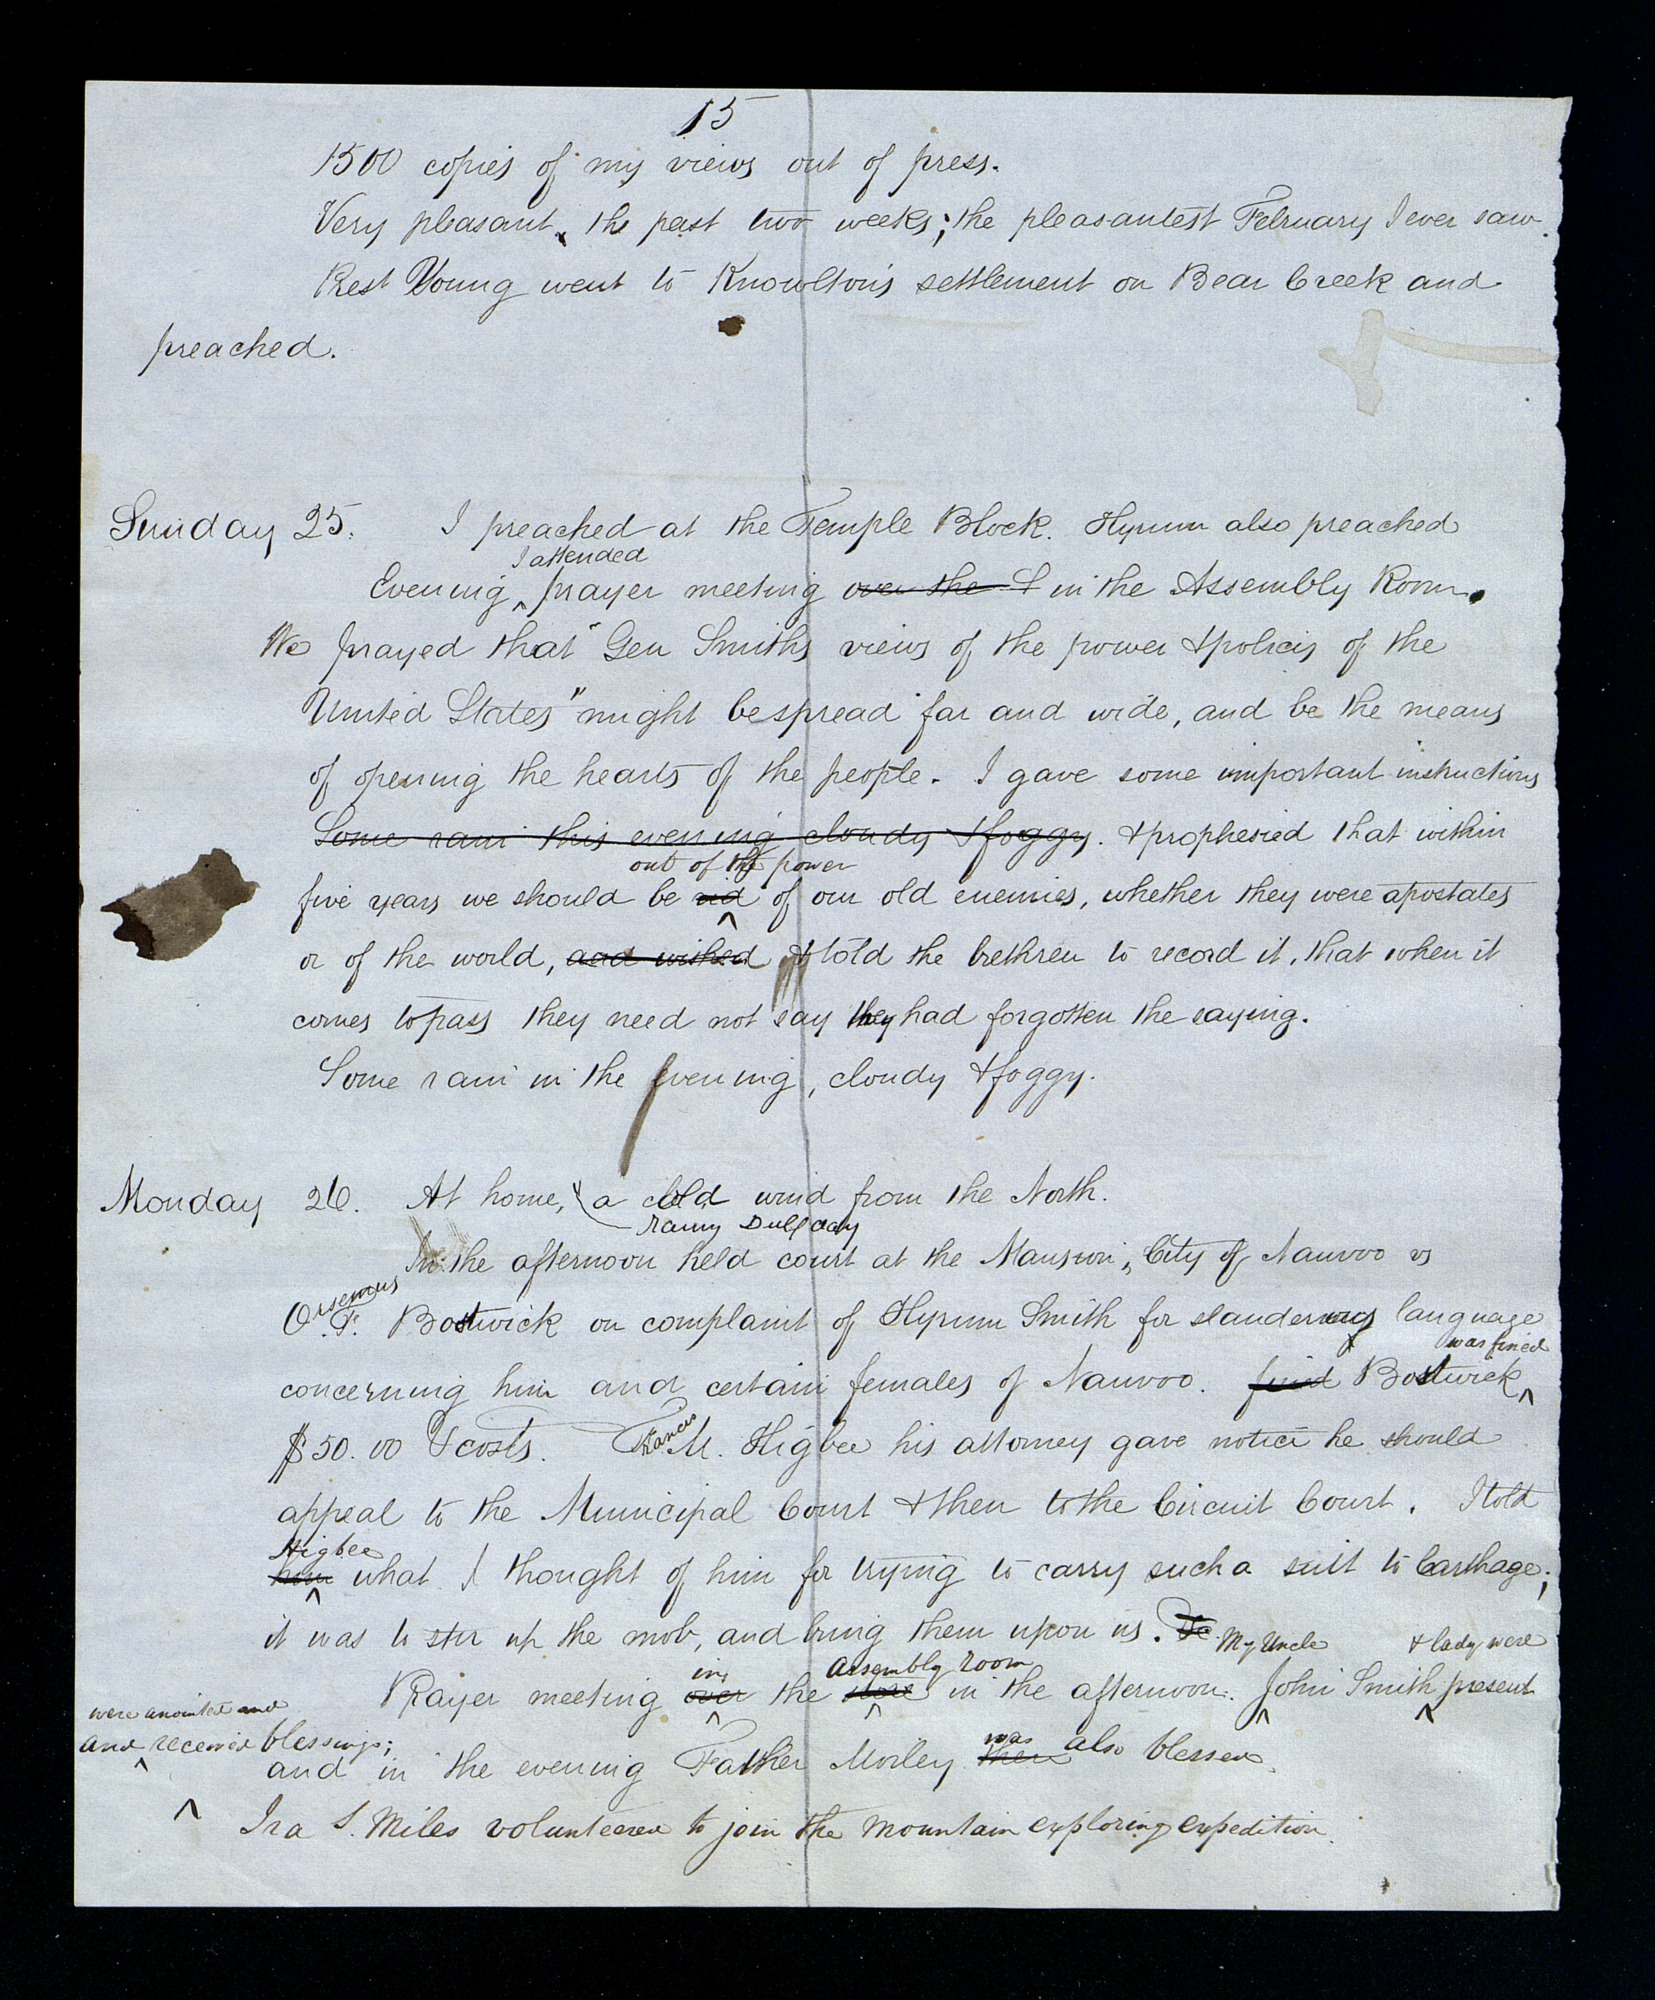 15
1500 copies of my views out of press.
Very pleasant, the past two weeks; the pleasantest February I ever saw.
Prest Young went to Knowlton's settlement on Bear Creek and
preached.
Sunday 25. I preached at the Temple Block. Hyrum also preached
I attended
Evening ^ prayer meeting over the S in the Assembly Room.
We prayed that "Gen Smiths views of the power & policy of the
United States" might be spread far and wide, and be the means
of opening the hearts of the people. I gave some important instructions
Some rain this evening cloudy & foggy. & prophesied that within
out of the power
five years we should be rid ^ of our old enemies, whether they were apostates
or of the world, and wished & told the brethren to record it, that when it
comes to pass they need not say they had forgotten the saying.
Some rain in the Evening, cloudy & foggy.
Monday 26. At home, a cold wind from the North.
rainy Dull day
In the afternoon held court at the Mansion, City of Nauvoo vs
Orsemus
O. F. Bostwick on complaint of Hyrum Smith for slanderous language
was fined
concerning him and certain females of Nauvoo. fined Bostwick ^
$50.00 & costs. Francis M. Higbee his attorney gave notice he should
appeal to the Municipal Court & then to the Circuit Court. I told
Higbee
him ^ what I thought of him for trying to carry such a suit to Carthage;
it was to stir up the mob, and bring them upon us.
My Uncle & lady were
in assembly room
Prayer meeting over ^ the store ^ in the afternoon. ^ John Smith ^ present
were anointed and
and ^ received blessings;
was also
and in the evening Father Morley then blessed.
^ Ira S. Miles volunteered to join the mountain exploring expedition.